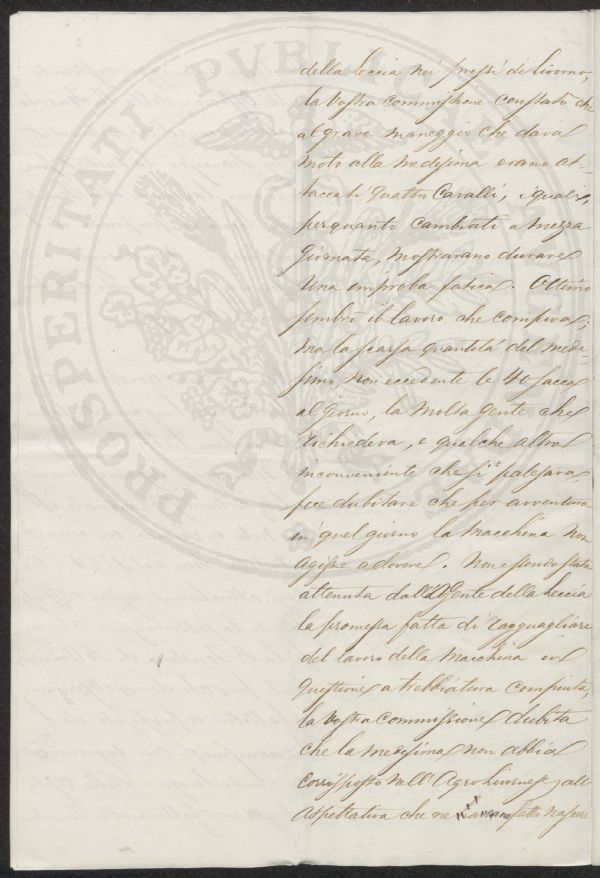 della Leccia nei pressi di Livorno,
la Vostra Commissione constatò che
al grave maneggio che dava
moto alla medesima erano at-
taccati quattro Cavalli, i quali,
per quanto cambiati a mezza
giornata, mostravano durare
una improba fatica. Ottimo
sembrò il lavoro che compiva;
ma la scarsa quantità del mede-
simo, non eccedente le 40 sacca
al giorno, la molta gente che
richiedeva, e qualche altro
inconveniente che si palesava,
fece dubitare che per avventura
in quel giorno la macchina non
agisse a dovere. Non essendo stata
attenuta dall'Agente della Leccia
la promessa fatta di ragguagliare
del lavoro della macchina in
questione a trebbiatura compiuta,
la Vostra Commissione dubita
che la medesima non abbia
corrisposto nell'Agro Livornese, all'
aspettativa che ne avevano fatto nascere
PROSPERITATI PVBLICAE